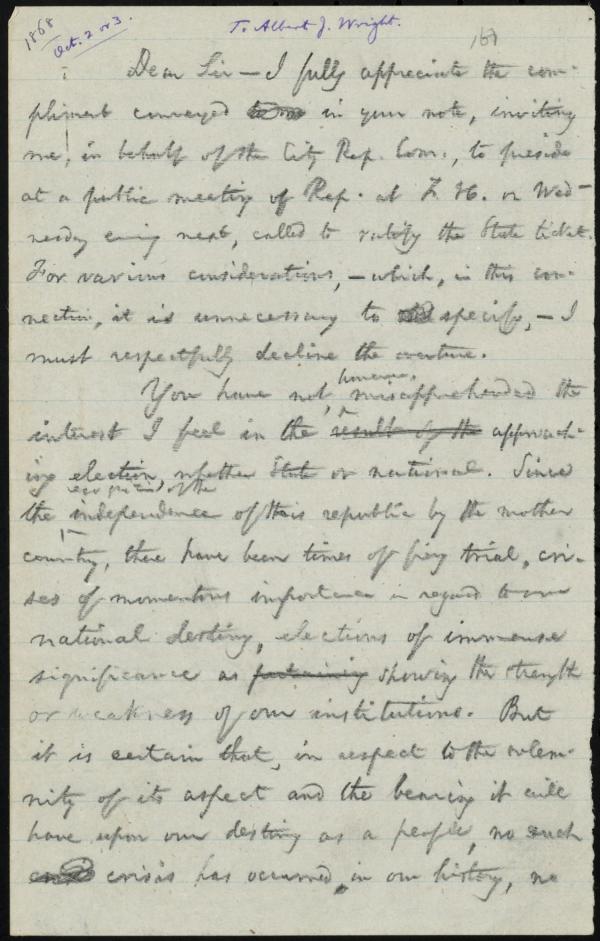 1868
Oct. 2 or 3.
To Albert J. Wright.
161
Dear Sir — I fully appreciate the com-
pliment conveyed in your note, inviting
me, in behalf of the City Rep. Com., to preside
at a public meeting of Rep. at F. H. on Wed-
nesday evening next, called to ratify the State ticket.
For various considerations, — which, in this con-
nection, it is unnecessary to specify, — I
must respectfully decline the overture.
You have not, however, misapprehended the
interest I feel in the result of the approach-
ing election, whether State or national. Since
recognition of the
the independence of this republic by the mother
country, there have been times of fiery trial, cri-
ses of momentous importance in regard to our
national destiny, elections of immense
significance as pertaining showing the strength
or weakness of our institutions. But
it is certain that, in respect to the solem-
nity of its aspect and the bearing it will
have upon our destiny as a people, no such
crisis has occurred in our history, no